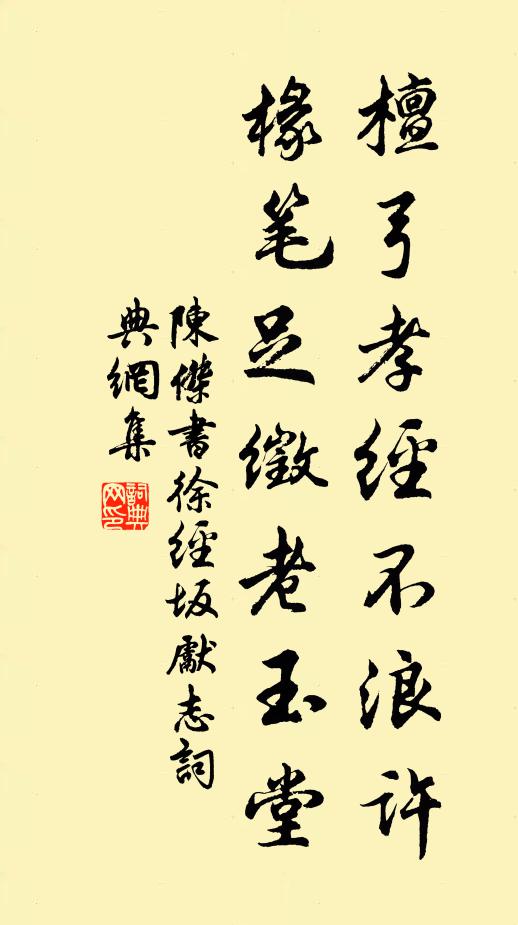 檀弓孝經不浪許
椽笔足徵老玉堂
陳傑書徐經坂獻志詞
典網集
詞典
网印